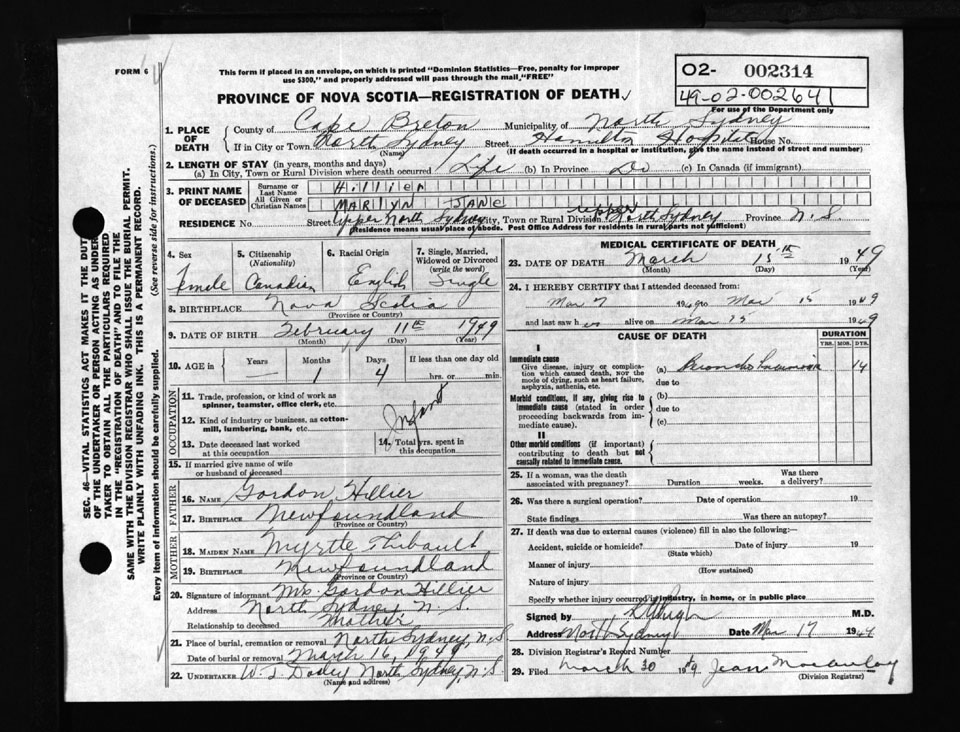 FORM 6
This form if placed in an envelope, on which is printed "Dominion Statistics—Free, penalty for improper
use $300," and properly addressed will pass through the mail, "FREE"
PROVINCE OF NOVA SCOTIA—REGISTRATION OF DEATH
02- 002314
49-02-002641
For use of the Department only
1. PLACE OF DEATH
County of Cape Breton Municipality of North Sydney
If in City or Town North Sydney Street Hamilton Hospital House No.
(Name) (If death occurred in a hospital or institution, give the name instead of street and number)
2. LENGTH OF STAY (in years, months and days)
(a) In City, Town or Rural Division where death occurred Life (b) In Province Do (c) In Canada (if immigrant)
3. PRINT NAME OF DECEASED
Surname or Last Name Hillier
All Given or Christian Names MARILYN JANE
RESIDENCE No. Street Upper North Sydney City, Town or Rural Division Upper North Sydney Province N.S.
(Residence means usual place of abode. Post Office Address for residents in rural parts not sufficient)
4. Sex Female
5. Citizenship (Nationality) Canadian
6. Racial Origin English
7. Single, Married, Widowed or Divorced (write the word) Single
8. BIRTHPLACE Nova Scotia
(Province or Country)
9. DATE OF BIRTH February 11th 1949
(Month) (Day) (Year)
10. AGE in Years — Months 1 Days 4 If less than one day old hrs. or min.
OCCUPATION
11. Trade, profession, or kind of work as spinner, teamster, office clerk, etc.
12. Kind of industry or business, as cotton-mill, lumbering, bank, etc.
Infant
13. Date deceased last worked at this occupation
14. Total yrs. spent in this occupation
15. If married give name of wife or husband of deceased
FATHER
16. NAME Gordon Hillier
17. BIRTHPLACE Newfoundland
(Province or Country)
MOTHER
18. MAIDEN NAME Myrtle Thibault
19. BIRTHPLACE Newfoundland
(Province or Country)
20. Signature of informant Mrs. Gordon Hillier
Address North Sydney N.S.
Relationship to deceased Mother
21. Place of burial, cremation or removal North Sydney, N.S
Date of burial or removal March 16, 1949
22. UNDERTAKER W. J. Dooley North Sydney, N.S.
(Name and address)
MEDICAL CERTIFICATE OF DEATH
23. DATE OF DEATH March 15th 1949
(Month) (Day) (Year)
24. I HEREBY CERTIFY that I attended deceased from:
Mar 7 1949 to Mar 15 1949
and last saw h alive on Mar 15 1949
CAUSE OF DEATH
DURATION
YRS. MOS. DYS.
I
Immediate cause
Give disease, injury or complication which caused death, not the mode of dying, such as heart failure, asphyxia, asthenia, etc.
(a) Broncho Pneumonia 14
due to
Morbid conditions, if any, giving rise to immediate cause (stated in order proceeding backwards from immediate cause).
(b)
due to
(c)
II
Other morbid conditions (if important) contributing to death but not causally related to immediate cause.
25. If a woman, was the death associated with pregnancy? Duration weeks. Was there a delivery?
26. Was there a surgical operation? Date of operation 19
State findings Was there an autopsy?
27. If death was due to external causes (violence) fill in also the following—
Accident, suicide or homicide? Date of injury 19
(State which)
Manner of injury
(How sustained)
Nature of injury
Specify whether injury occurred in industry, in home, or in public place
Signed by M.D.
Address North Sydney Date Mar 17 1949
28. Division Registrar's Record Number
29. Filed March 30 1949 Jean Macaulay
(Division Registrar)
SEC. 46—VITAL STATISTICS ACT MAKES IT THE DUTY
OF THE UNDERTAKER OR PERSON ACTING AS UNDER-
TAKER TO OBTAIN ALL THE PARTICULARS REQUIRED
IN THE "REGISTRATION OF DEATH" AND TO FILE THE
SAME WITH THE DIVISION REGISTRAR WHO SHALL ISSUE THE BURIAL PERMIT.
WRITE PLAINLY WITH UNFADING INK. THIS IS A PERMANENT RECORD.
Every item of information should be carefully supplied. (See reverse side for instructions.)